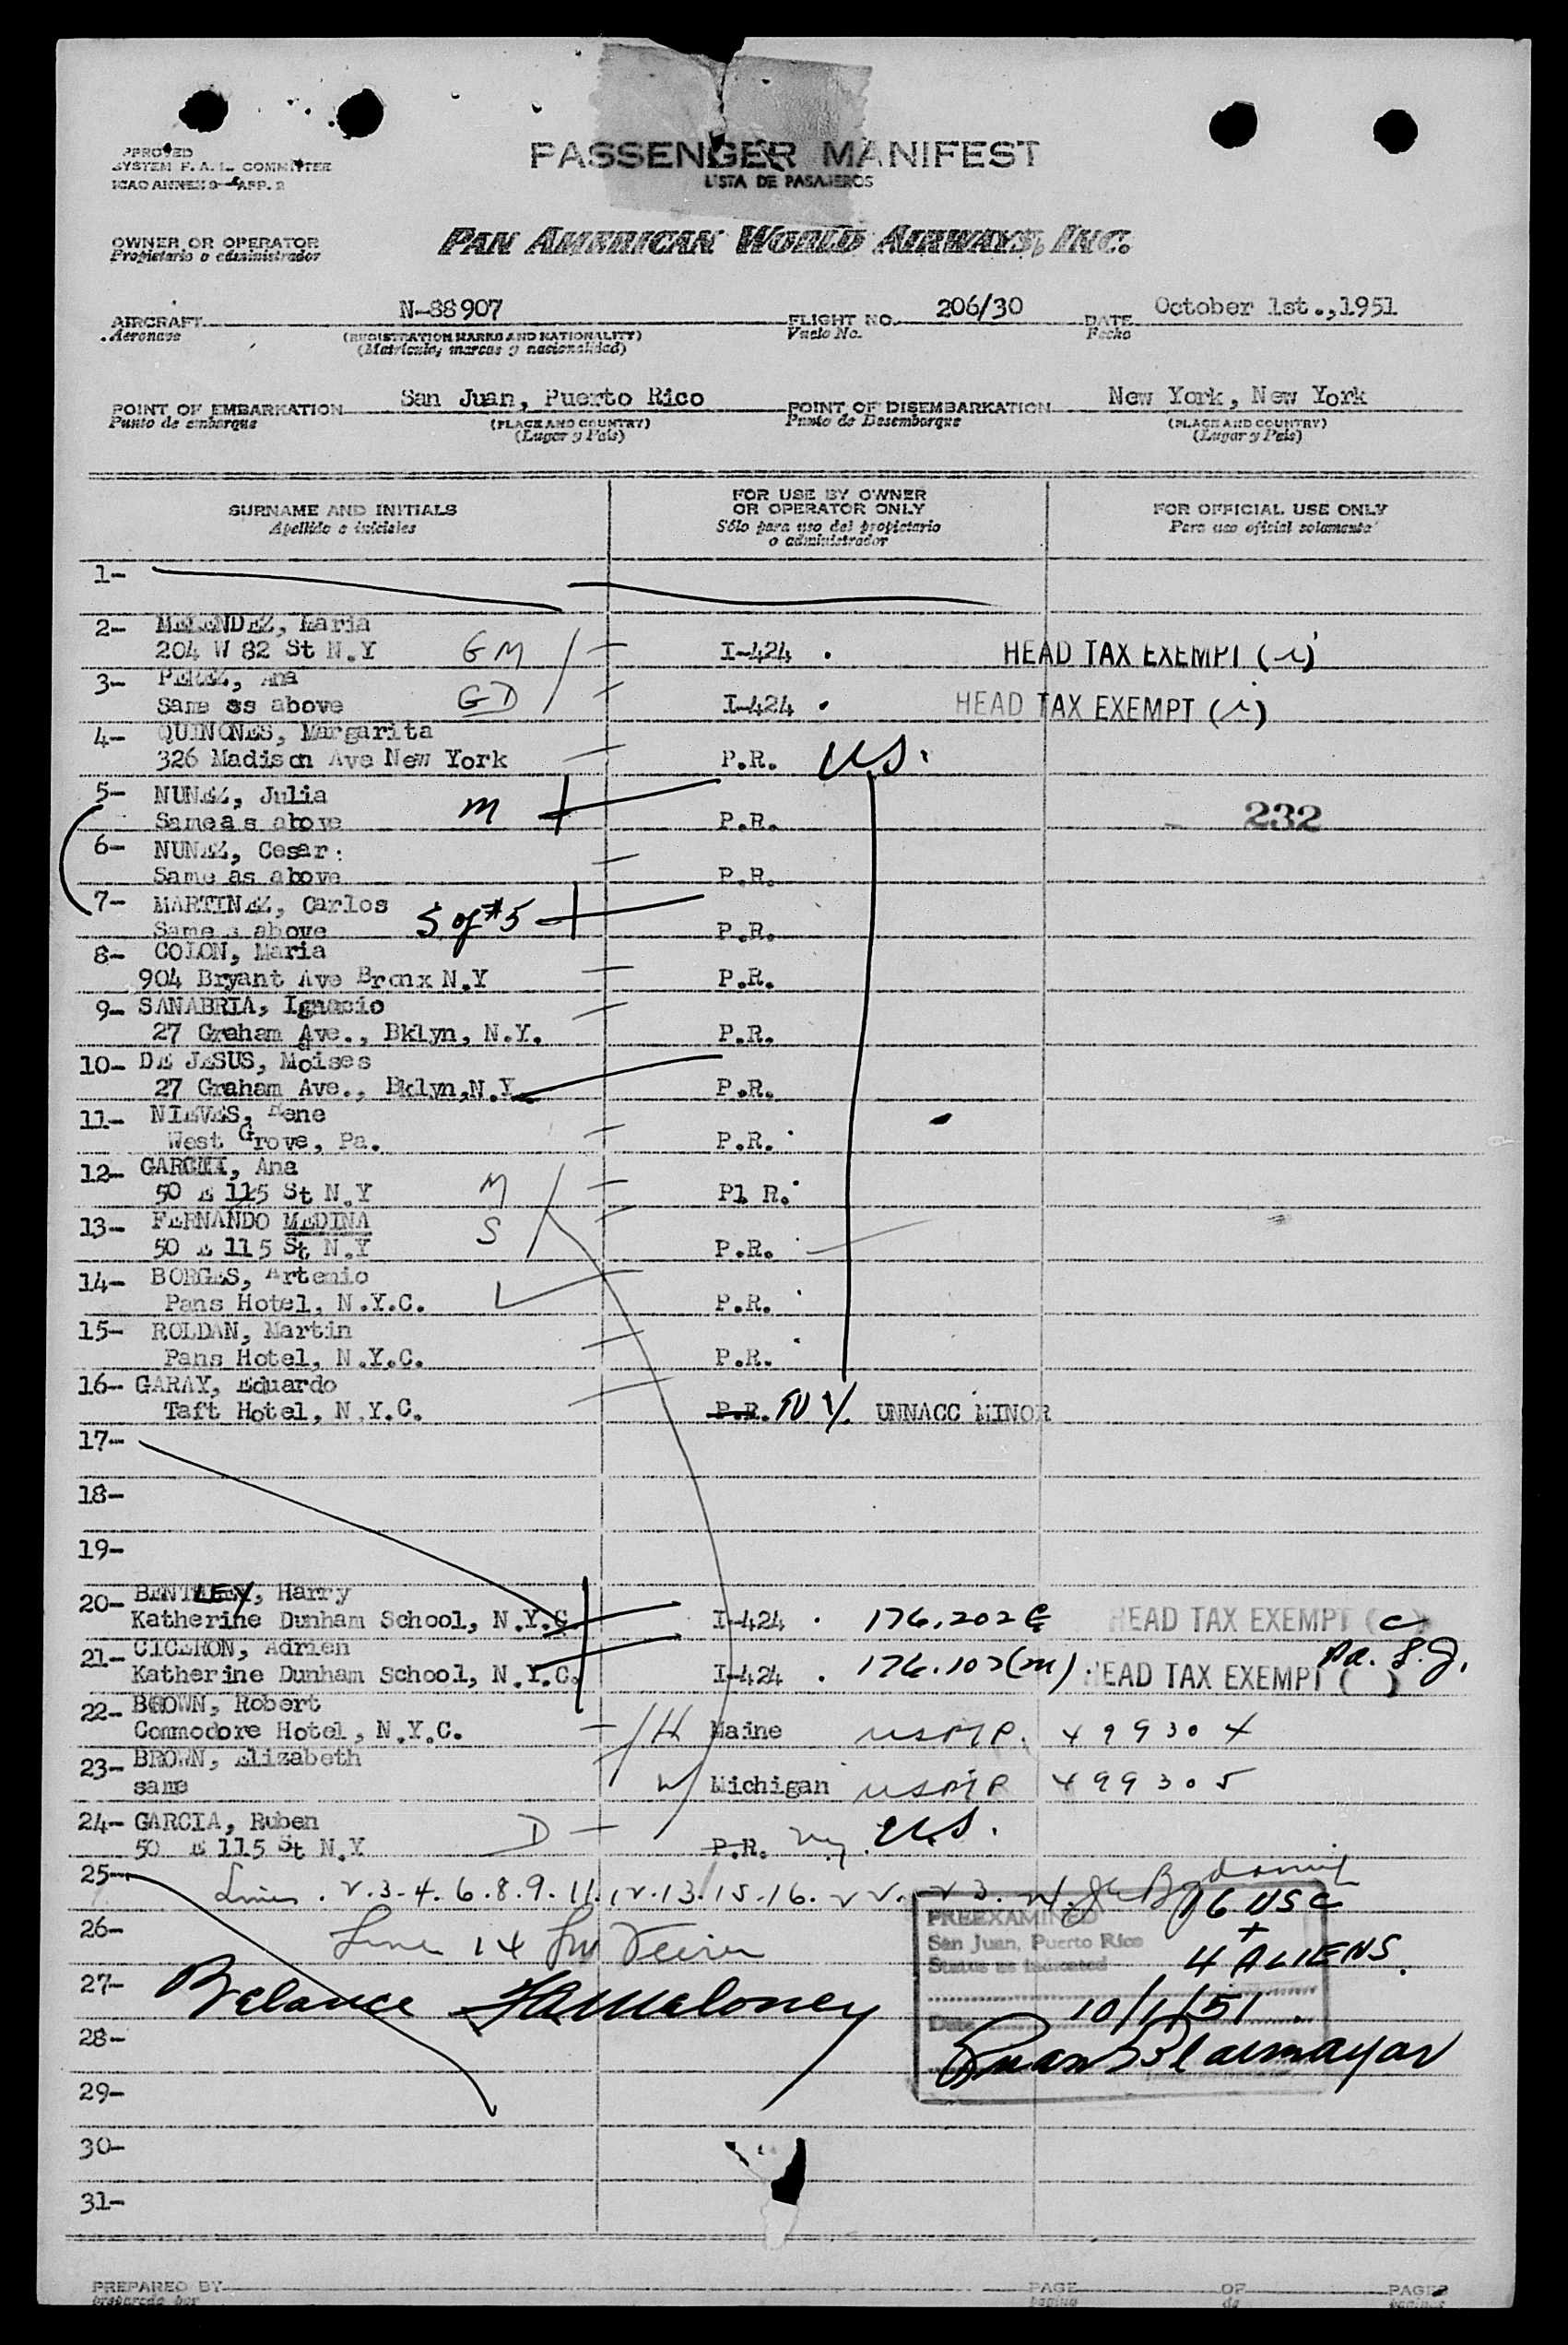 PPROVED
SYSTEM F. A. L. COMMITTEE
ICAO ANNEX 9 APP. 2
PASSENGER MANIFEST
LISTA DE PASAJEROS
OWNER OR OPERATOR
Propietario o administrador
PAN AMERICAN WORLD AIRWAYS, INC.
AIRCRAFT N-88907 FLIGHT NO. 206/30 DATE October 1st.,1951
Aeronave (REGISTRATION MARKS AND NATIONALITY) Vuelo No. Fecha
(Matricula, marcas y nacionalidad)
POINT OF EMBARKATION San Juan, Puerto Rico POINT OF DISEMBARKATION New York, New York
Punto de embarque (PLACE AND COUNTRY) Punto de Desembarque (PLACE AND COUNTRY)
(Lugar y País) (Lugar y País)
SURNAME AND INITIALS FOR USE BY OWNER OR OPERATOR ONLY FOR OFFICIAL USE ONLY
Apellido e iniciales Sólo para uso del propietario o administrador Para uso oficial solamente
1-
2- MELENDEZ, Maria
204 W 82 St N.Y GM I-424 . HEAD TAX EXEMPT (i)
3- PEREZ, Ana
Same as above GD I-424 . HEAD TAX EXEMPT (i)
4- QUINONES, Margarita
326 Madison Ave New York P.R. U.S.
5- NUNEZ, Julia
Same as above M P.R. 232
6- NUNEZ, Cesar
Same as above P.R.
7- MARTINEZ, Carlos
Same s above S of #5 P.R.
8- COLON, Maria
904 Bryant Ave Bronx N.Y P.R.
9- SANABRIA, Ignacio
27 Graham Ave., Bklyn, N.Y. P.R.
10- DE JESUS, Moises
27 Graham Ave., Bklyn,N.Y. P.R.
11- NIEVES, Rene
West Grove, Pa. P.R.
12- Ana
50 E 115 St N.Y M P1 R.
13- FERNANDO MEDINA
50 E 115 St N.Y S P.R.
14- BORGES, Artemio
Pans Hotel, N.Y.C. P.R.
15- ROLDAN, Martin
Pans Hotel, N.Y.C. P.R.
16- GARAY, Eduardo
Taft Hotel, N.Y.C. P.R. UNNACC MINOR
17-
18-
19-
20- BENTLEY, Harry
Katherine Dunham School, N.Y.C. I-424 . 176.202 HEAD TAX EXEMPT (c)
21- CICERON, Adrien
Katherine Dunham School, N.Y.C. I-424 . 176.107(m) HEAD TAX EXEMPT ( )
22- BROWN, Robert
Commodore Hotel, N.Y.C. H Maine 499304
23- BROWN, Elizabeth
same W Michigan 499305
24- GARCIA, Ruben
50 E 115 St N.Y D P.R. U.S.
25- Lines . 2.3-4.6.8.9.11.12.13.15-16.22.23.24.
16 USC
26- Line 14 +
PREEXAMINED
San Juan, Puerto Rico
Status as indicated
4 ALIENS.
27- Balance
Date 10/1/51
28-
29-
30-
31-
PREPARED BY PAGE OF PAGES
preparado por página de páginas